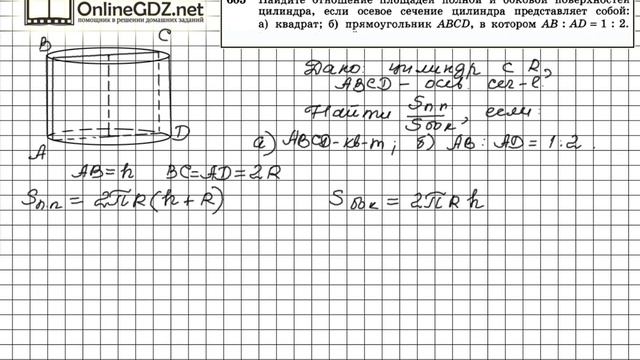 OnlineGDZ.net
помощник в решении домашних заданий
663 Найдите отношение площадей полной и боковой поверхностей
цилиндра, если осевое сечение цилиндра представляет собой:
а) квадрат; б) прямоугольник ABCD, в котором AB : AD = 1 : 2.
B C
A D
Дано: цилиндр с R,
ABCD – осев. сеч-е.
Найти Sп.п / Sбок, если:
а) ABCD-кв-т; б) AB : AD = 1:2.
AB = h BC = AD = 2R
Sп.п = 2πR(h + R) Sбок = 2πRh